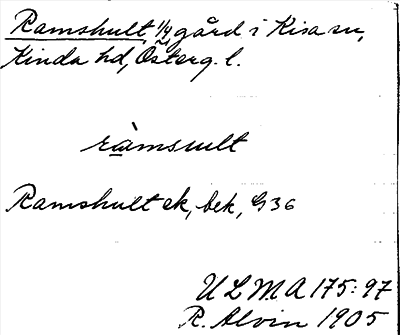 Ramshult, 1/4 gård i Kisa sn,
Kinda hd, Österg. l.
ràmsult
Ramshult ek, bek, G 36
ULMA 175:97
R. Alvin 1905